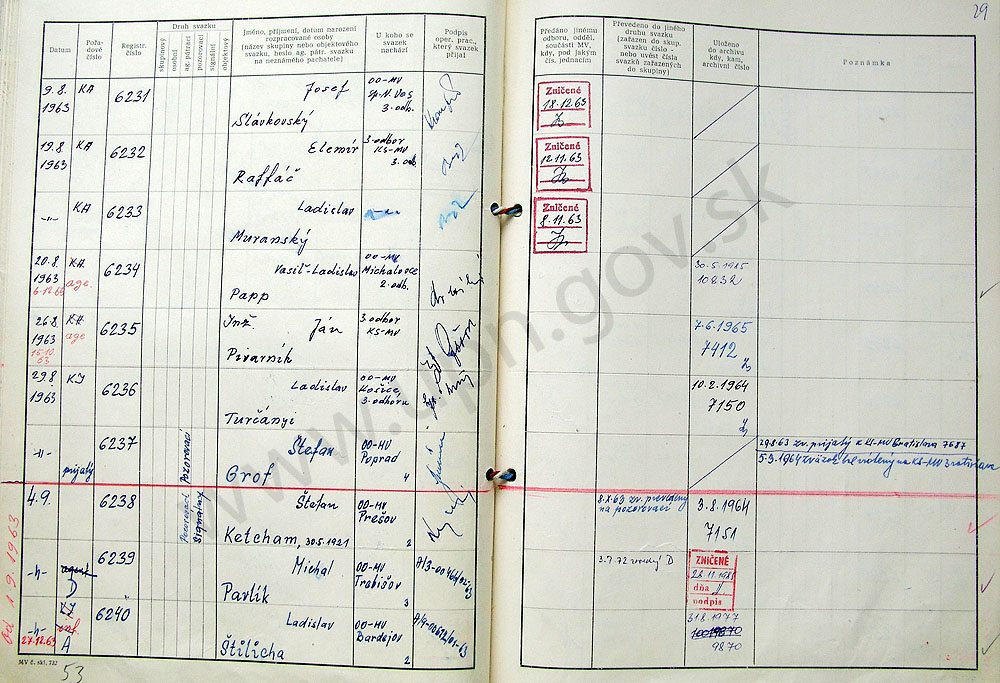 29
Datum
Pořadové číslo
Registr. číslo
Druh svazku
skupinový
osobní
ag. pátrací
pozorovací
signální
objektový
Jméno, příjmení, datum narození
rozpracované osoby
(název skupiny nebo objektového
svazku, heslo ag. pátr. svazku
na neznámého pachatele)
U koho se
svazek
nachází
Podpis
oper. prac.,
který svazek
přijal
Předáno jinému
odboru, odděl.
součásti MV,
kdy, pod jakým
čís. jednacím
Převedeno do jiného
druhu svazku
(zařazen do skup.
svazku číslo -
nebo uvést čísla
svazků zařazených
do skupiny)
Uloženo
do archivu
kdy, kam,
archivní číslo
Poznámka
9.8. 1963 KA 6231 Josef Slávkovský OO-MV Sp.N.Ves 3.odb.
Zničené 18.12.63
19.8. 1963 KA 6232 Elemír Raffáč 3.odbor KS-MV 3.odb.
Zničené 12.11.63
-"- KA 6233 Ladislav Muranský
Zničené 8.11.63
20.8. 1963 KA 6234 Vasil-Ladislav Papp OO-MV Michalovce 2.odb.
6.12.65 age.
30.5.1985
10832
26.8. 1963 KA 6235 Inž. Ján Pivarník 3.odbor KS-MV
15.10.63 age
7.6.1965
7412
29.8. 1963 KI 6236 Ladislav Turčányi OO-MV Košice, 3.odboru
10.2.1964
7150
-"- prijatý 6237 Pozorovací Štefan Grof OO-MV Poprad 4
29.8.63 zv. prijatý z KS-MV Bratislava 7687
5.3.1964 zväzok bol vrátený na KS-MV Bratislava
od 1.9.1963
4.9. 6238 Pozorovací Signálny Štefan Ketcham, 30.5.1921 OO-MV Prešov 2
8.X.63 zv. prevedený na pozorovací
3.8.1964
7151
-"- agent D 6239 Michal Pavlík OO-MV Trebišov 3
3.7.72 D
ZNIČENÉ
dňa
podpis
-"- 27.12.63 A 6240 Ladislav Štilicha OO-MV Bardejov 2
31.8.1977
9870
MV č. skl. 732
53
www.upn.gov.sk